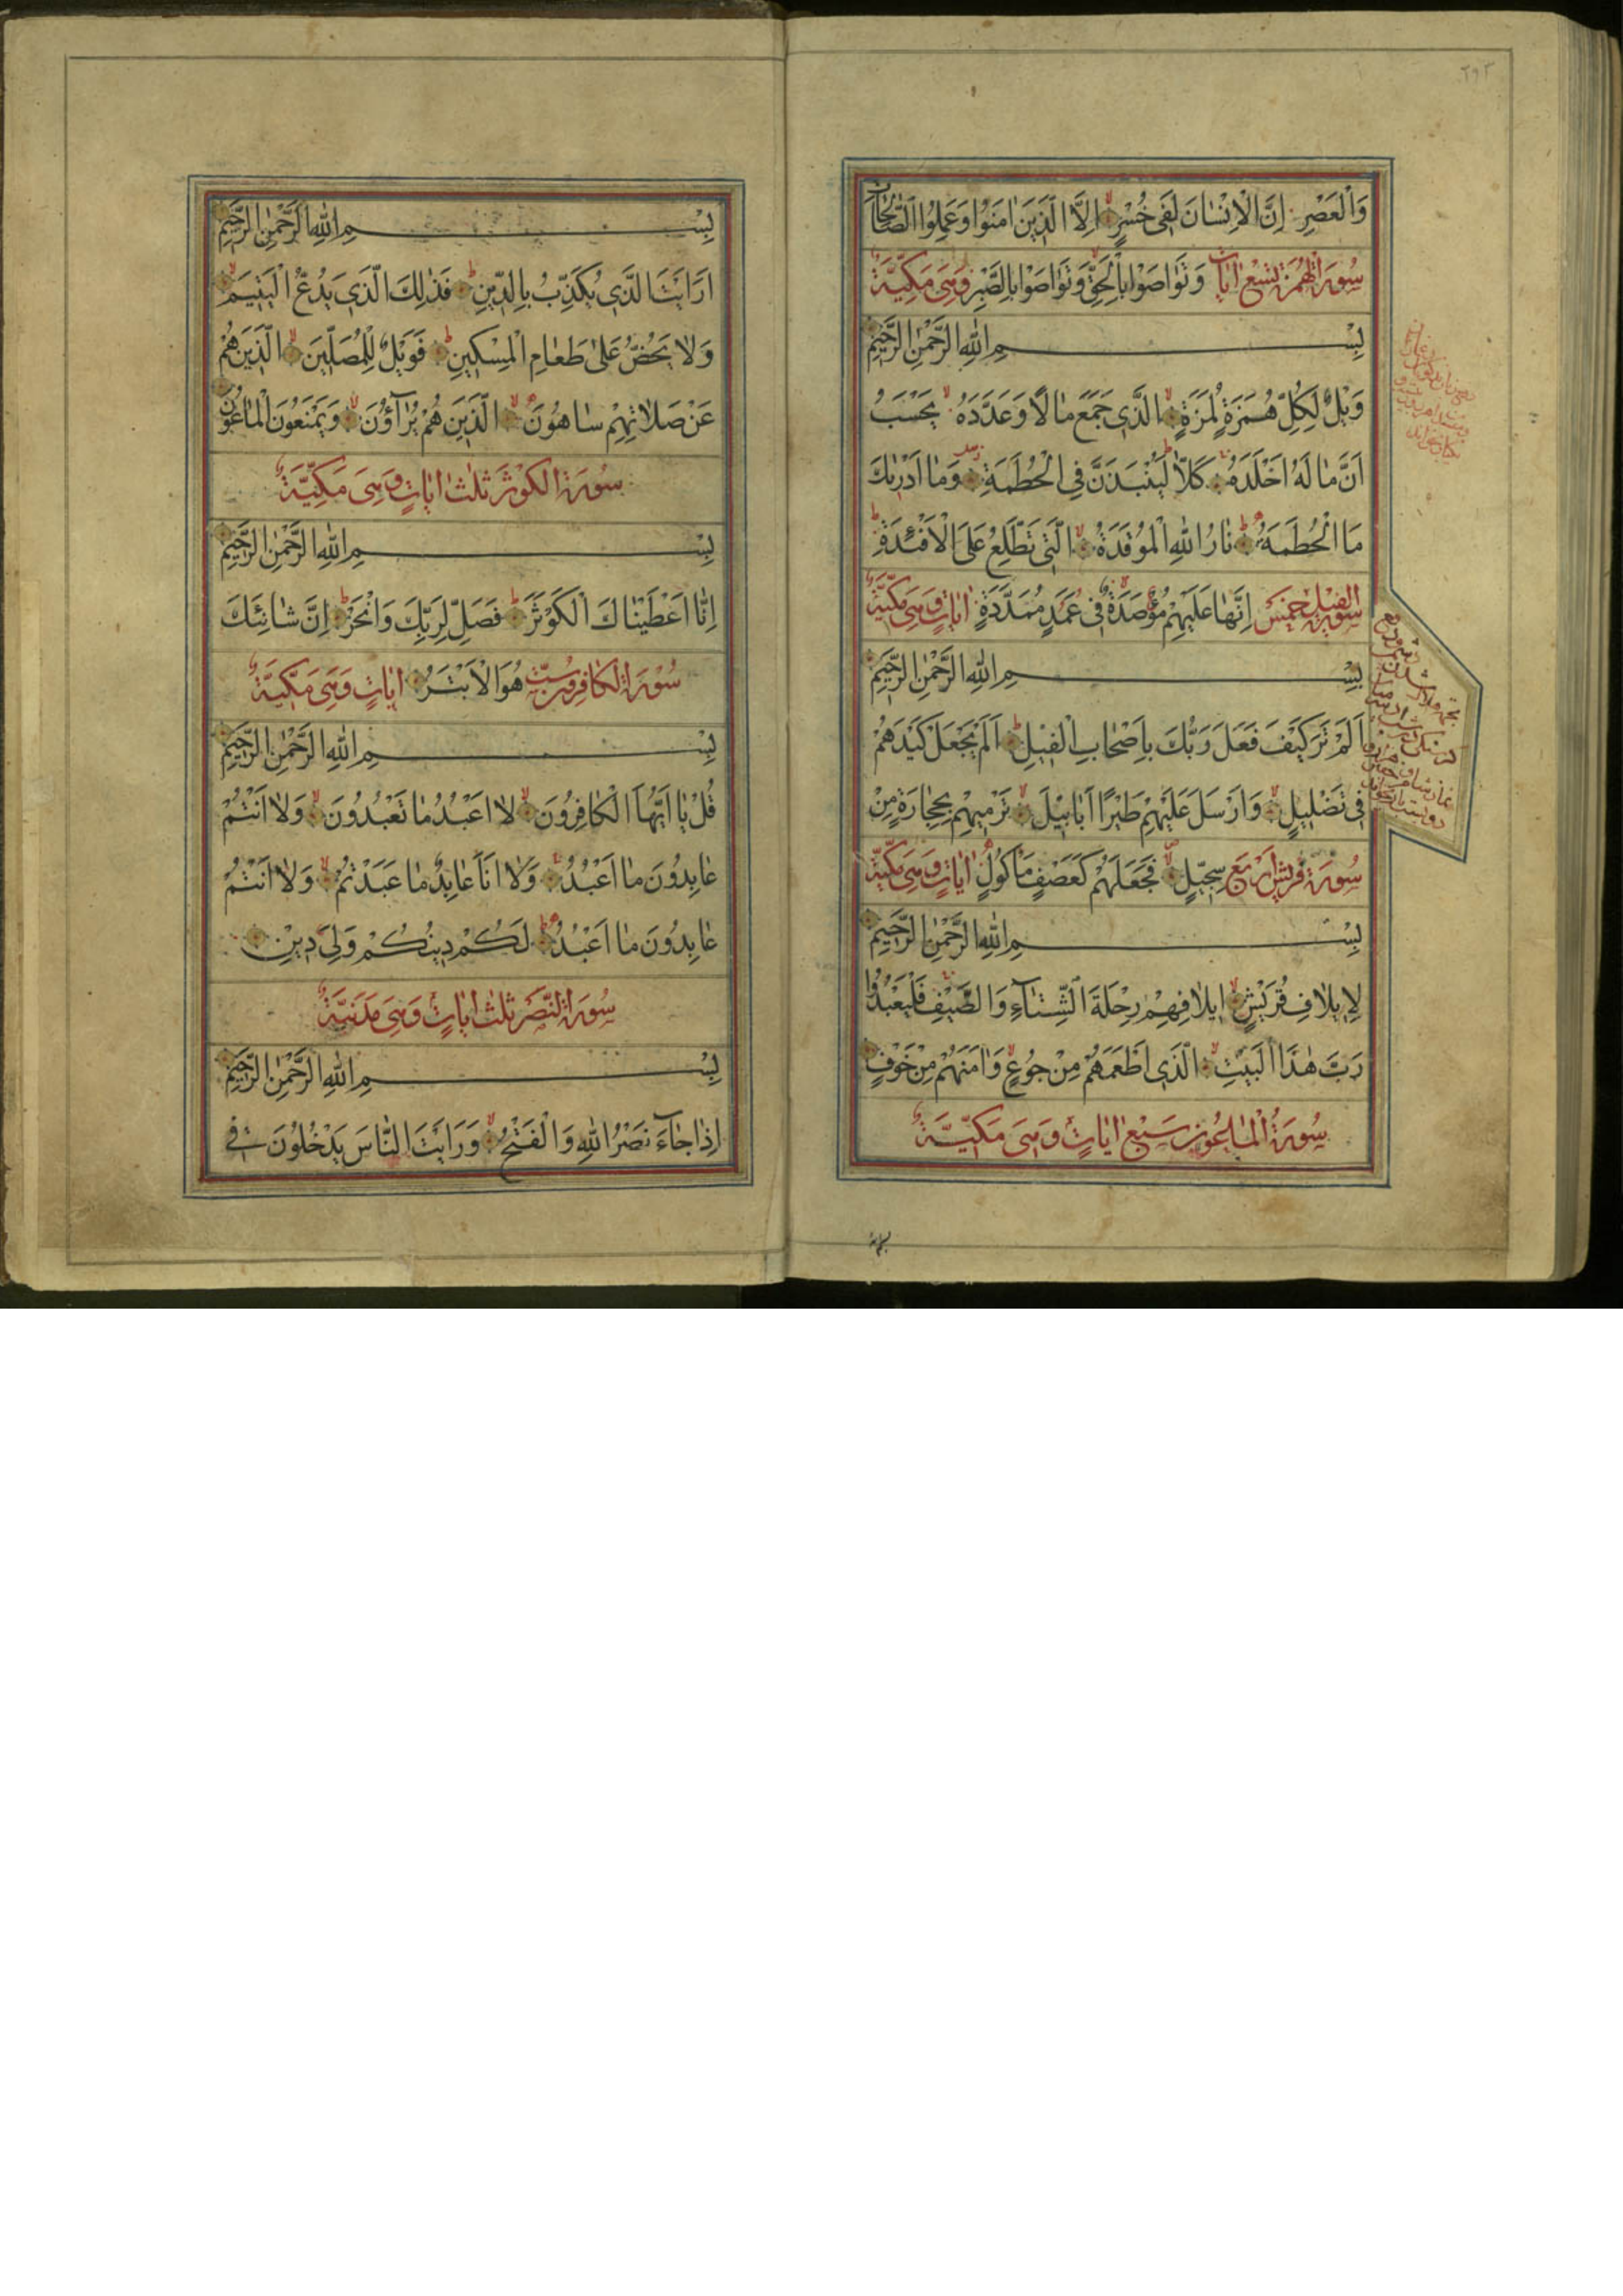 ٢٩٣
وَالْعَصْرِ اِنَّ الْاِنْسٰانَ لَفٖى خُسْرٍ اِلَّا الَّذٖينَ اٰمَنُوا وَعَمِلُوا الصّٰالِحٰاتِ
سُورَةُ الْهُمَزَة تِسْع اٰيَات وَتَوٰاصَوْا بِالْحَقِّ وَتَوٰاصَوْا بِالصَّبْرِ وَهِىَ مَكِّيَّةٌ
بِسْمِ اللّٰهِ الرَّحْمٰنِ الرَّحٖيمِ
وَيْلٌ لِكُلِّ هُمَزَةٍ لُمَزَةٍ الَّذٖى جَمَعَ مٰالًا وَعَدَّدَهُ يَحْسَبُ
اَنَّ مٰا لَهُ اَخْلَدَهُ كَلّٰا لَيُنْبَذَنَّ فِى الْحُطَمَةِ وَمٰا اَدْرٰيكَ
مَا الْحُطَمَةُ نٰارُ اللّٰهِ الْمُوقَدَةُ الَّتٖى تَطَّلِعُ عَلَى الْاَفْئِدَةِ
سُورَةُ الْفٖيل خَمْس اِنَّهٰا عَلَيْهِمْ مُؤْصَدَةٌ فٖى عَمَدٍ مُمَدَّدَةٍ اٰيٰاتٍ وَهِىَ مَكِّيَّةٌ
بِسْمِ اللّٰهِ الرَّحْمٰنِ الرَّحٖيمِ
اَلَمْ تَرَ كَيْفَ فَعَلَ رَبُّكَ بِاَصْحٰابِ الْفٖيلِ اَلَمْ يَجْعَلْ كَيْدَهُمْ
فٖى تَضْلٖيلٍ وَاَرْسَلَ عَلَيْهِمْ طَيْرًا اَبٰابٖيلَ تَرْمٖيهِمْ بِحِجٰارَةٍ مِنْ
سُورَةُ قُرَيْش اَرْبَع سِجّٖيلٍ فَجَعَلَهُمْ كَعَصْفٍ مَأْكُولٍ اٰيٰاتٍ وَهِىَ مَكِّيَّةٌ
بِسْمِ اللّٰهِ الرَّحْمٰنِ الرَّحٖيمِ
لِاٖيلٰافِ قُرَيْشٍ اٖيلٰافِهِمْ رِحْلَةَ الشِّتٰآءِ وَالصَّيْفِ فَلْيَعْبُدُوا
رَبَّ هٰذَا الْبَيْتِ الَّذٖى اَطْعَمَهُمْ مِنْ جُوعٍ وَاٰمَنَهُمْ مِنْ خَوْفٍ
سُورَةُ الْمٰاعُون سَبْع اٰيٰاتٍ وَهِىَ مَكِّيَّةٌ
بِسْمِ اللّٰهِ الرَّحْمٰنِ الرَّحٖيمِ
اَرَاَيْتَ الَّذٖى يُكَذِّبُ بِالدّٖينِ فَذٰلِكَ الَّذٖى يَدُعُّ الْيَتٖيمَ
وَلٰا يَحُضُّ عَلٰى طَعٰامِ الْمِسْكٖينِ فَوَيْلٌ لِلْمُصَلّٖينَ الَّذٖينَ هُمْ
عَنْ صَلٰاتِهِمْ سٰاهُونَ الَّذٖينَ هُمْ يُرٰآؤُنَ وَيَمْنَعُونَ الْمٰاعُونَ
سُورَةُ الْكَوْثَر ثَلٰث اٰيٰاتٍ وَهِىَ مَكِّيَّةٌ
بِسْمِ اللّٰهِ الرَّحْمٰنِ الرَّحٖيمِ
اِنّٰا اَعْطَيْنٰاكَ الْكَوْثَرَ فَصَلِّ لِرَبِّكَ وَانْحَرْ اِنَّ شٰانِئَكَ
سُورَةُ الْكٰافِرُون سِتّ هُوَ الْاَبْتَرُ اٰيٰاتٍ وَهِىَ مَكِّيَّةٌ
بِسْمِ اللّٰهِ الرَّحْمٰنِ الرَّحٖيمِ
قُلْ يٰا اَيُّهَا الْكٰافِرُونَ لٰا اَعْبُدُ مٰا تَعْبُدُونَ وَلٰا اَنْتُمْ
عٰابِدُونَ مٰا اَعْبُدُ وَلٰا اَنَا عٰابِدٌ مٰا عَبَدْتُمْ وَلٰا اَنْتُمْ
عٰابِدُونَ مٰا اَعْبُدُ لَكُمْ دٖينُكُمْ وَلِىَ دٖينِ
سُورَةُ النَّصْر ثَلٰث اٰيٰاتٍ وَهِىَ مَدَنِيَّةٌ
بِسْمِ اللّٰهِ الرَّحْمٰنِ الرَّحٖيمِ
اِذٰا جٰآءَ نَصْرُ اللّٰهِ وَالْفَتْحُ وَرَاَيْتَ النّٰاسَ يَدْخُلُونَ فٖى